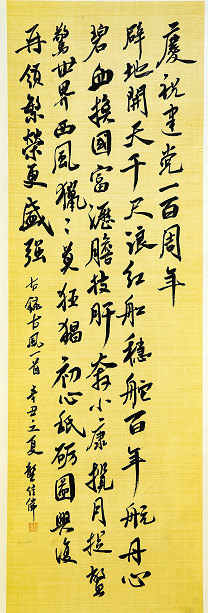 慶祝建党一百周年
辟地開天千尺浪红船穩舵百年航丹心
碧血換國富瀝膽披肝奔小康攬月捉鱉
驚世界西風獵〻莫狂猖初心砥砺圖興復
再領繁榮更盛强
右録古風一首辛丑之夏